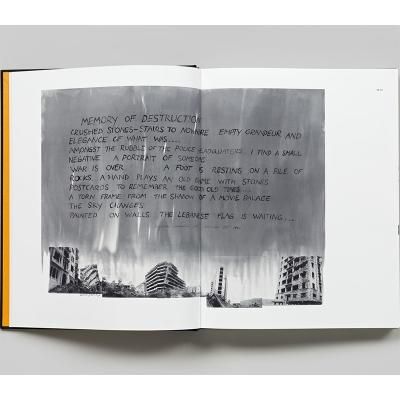 MEMORY OF DESTRUCTION
CRUSHED STONES-STAIRS TO NOWHERE EMPTY GRANDEUR AND
ELEGANCE OF WHAT WAS....
AMONGST THE RUBBLE OF THE POLICE HEADQUATERS I FIND A SMALL
NEGATIVE A PORTRAIT OF SOMEONE
WAR IS OVER A FOOT IS RESTING ON A PILE OF
ROCKS. A HAND PLAYS AN OLD GAME WITH STONES
POSTCARDS TO REMEMBER THE GOOD OLD TIMES ...
A TORN FRAME FROM THE SHADOW OF A MOVIE PALACE
THE SKY CHANGES
PAINTED ON WALLS THE LEBANESE FLAG IS WAITING....